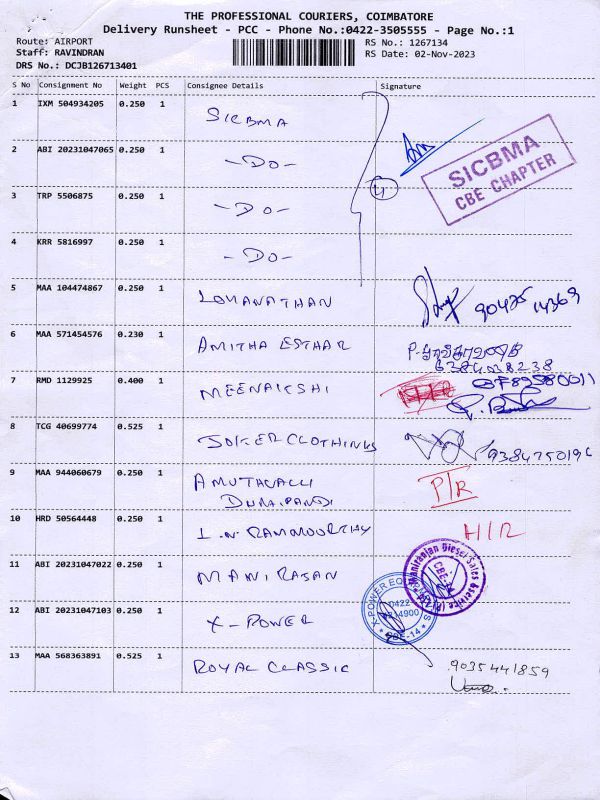 THE PROFESSIONAL COURIERS, COIMBATORE
Delivery Runsheet - PCC - Phone No.:0422-3505555 - Page No.:1
Route: AIRPORT
RS No.: 1267134
Staff: RAVINDRAN
RS Date: 02-Nov-2023
DRS No.: DCJB126713401
S No Consignment No Weight PCS Consignee Details Signature
1 IXM 504934205 0.250 1 SICBMA
SICBMA
CBE CHAPTER
2 ABI 20231047065 0.250 1 -DO-
3 TRP 5506875 0.250 1 -DO-
4
4 KRR 5816997 0.250 1 -DO-
5 MAA 104474867 0.250 1 LOKANATHAN 90425 14369
6 MAA 571454576 0.230 1 AMITHA ESTHAR
6384038238
7 RMD 1129925 0.400 1 MEENAKSHI
8 TCG 40699774 0.525 1 JOKER CLOTHINGS
9 MAA 944060679 0.250 1 AMUTHAVALLI P/R
DURAIPANDI
10 HRD 50564448 0.250 1 L.N RAMMOORTHY H/R
11 ABI 20231047022 0.250 1 MANIRAJAN
Maniranjan Diesel Sales &
CBE-14
12 ABI 20231047103 0.250 1 X-POWER
X-POWER
0422
CBE-14
13 MAA 568363891 0.525 1 ROYAL CLASSIC 9035441859